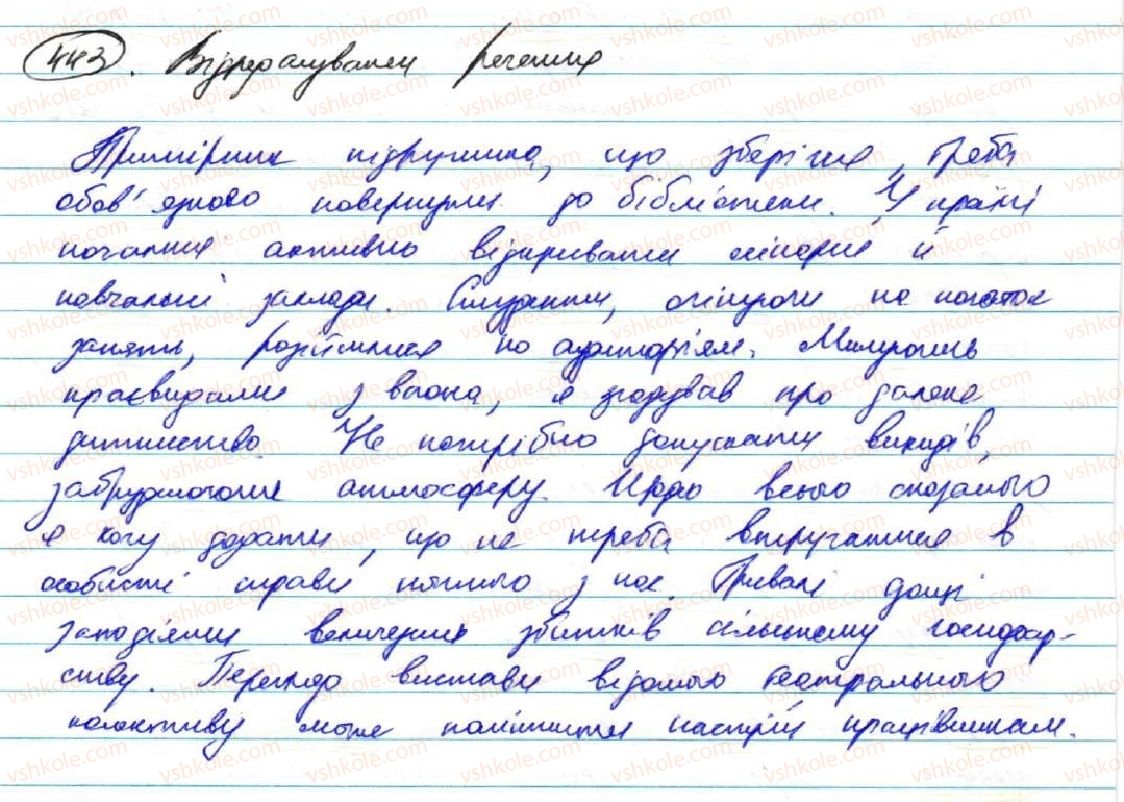 443. Відредаговані речення
Примірник підручника, що зберігся, треба
обов'язково повернути до бібліотеки. У країні
почали активно відкривати ліцеї й
навчальні заклади. Студенти, очікуючи на початок
занять, розійшлися по аудиторіям. Милуючись
краєвидами з вагона, я згадував про далеке
дитинство. Не потрібно допускати викидів,
забруднюючи атмосферу. Щодо всього сказаного
я хочу додати, що не треба втручатися в
особисті справи кожного з нас. Тривалі дощі
заподіяли величезних збитків сільському господар-
ству. Перегляд вистави відомого театрального
колективу може поліпшити настрій працівникам.
vshkole.com